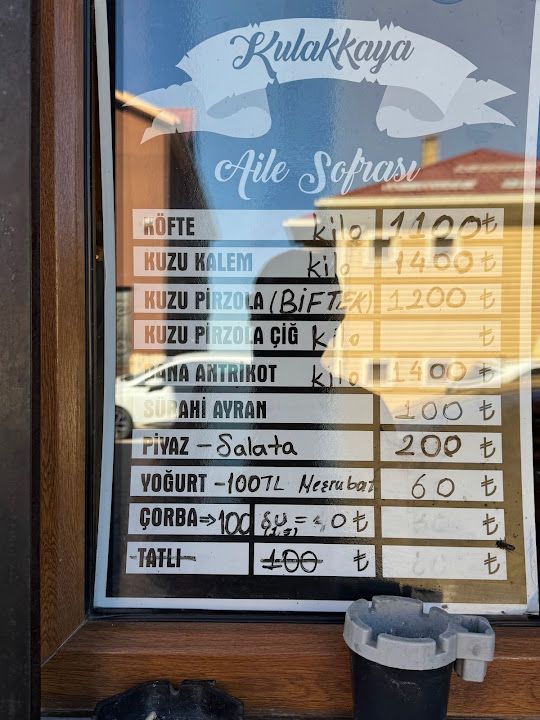 Kulakkaya
Aile Sofrası
KÖFTE kilo 1100 ₺
KUZU KALEM kilo 1400 ₺
KUZU PİRZOLA (BİFTEK) 1200 ₺
KUZU PİRZOLA ÇİĞ kilo ₺
DANA ANTRİKOT kilo 1400 ₺
SÜRAHİ AYRAN 100 ₺
PİYAZ - Salata 200 ₺
YOĞURT - 100TL Meşrubat 60 ₺
ÇORBA ⇒ 100 ŞU = ₺ ₺
TATLI 100 ₺ ₺